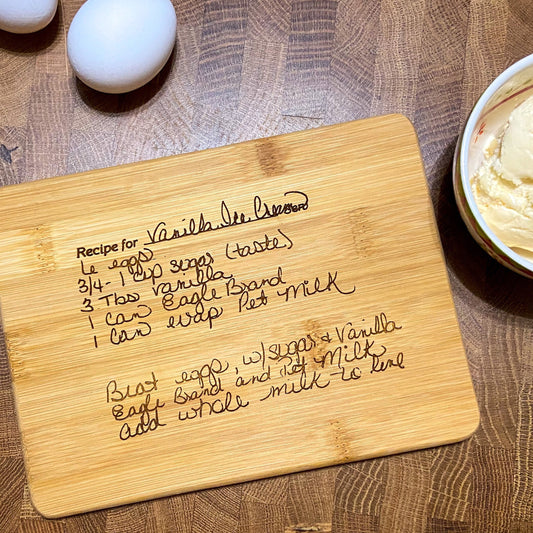 Recipe for Vanilla Ice Cream
6 eggs
3/4 - 1 cup sugar (taste)
3 Tbs vanilla
1 Can Eagle Brand
1 Can evap Pet Milk
Beat eggs, w/ sugar & Vanilla
Eagle Brand and Pet Milk
add whole milk to line